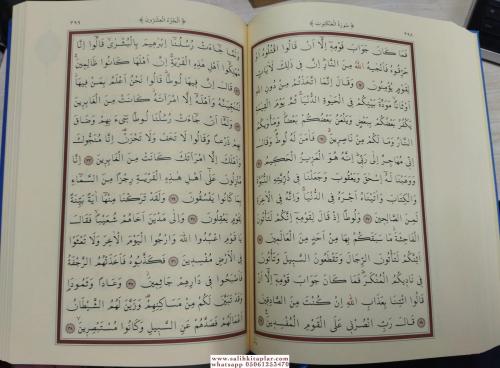 ٣٩٨ سُورَةُ الْعَنْكَبُوتِ
فَمَا كَانَ جَوَابَ قَوْمِهِ إِلَّا أَنْ قَالُوا اقْتُلُوهُ أَوْ
حَرِّقُوهُ فَأَنْجٰيهُ اللّٰهُ مِنَ النَّارِ إِنَّ فِي ذٰلِكَ لَآيَاتٍ
لِقَوْمٍ يُؤْمِنُونَ ﴿٢٤﴾ وَقَالَ إِنَّمَا اتَّخَذْتُمْ مِنْ دُونِ اللّٰهِ
أَوْثَانًا مَوَدَّةَ بَيْنِكُمْ فِي الْحَيٰوةِ الدُّنْيَا ثُمَّ يَوْمَ الْقِيٰمَةِ
يَكْفُرُ بَعْضُكُمْ بِبَعْضٍ وَيَلْعَنُ بَعْضُكُمْ بَعْضًا وَمَأْوٰيكُمُ
النَّارُ وَمَا لَكُمْ مِنْ نَاصِرِينَ ﴿٢٥﴾ فَاٰمَنَ لَهُ لُوطٌ وَقَالَ
إِنِّي مُهَاجِرٌ إِلٰى رَبِّي إِنَّهُ هُوَ الْعَزِيزُ الْحَكِيمُ ﴿٢٦﴾
وَوَهَبْنَا لَهُ إِسْحٰقَ وَيَعْقُوبَ وَجَعَلْنَا فِي ذُرِّيَّتِهِ النُّبُوَّةَ
وَالْكِتَابَ وَاٰتَيْنَاهُ أَجْرَهُ فِي الدُّنْيَا وَإِنَّهُ فِي الْاٰخِرَةِ
لَمِنَ الصَّالِحِينَ ﴿٢٧﴾ وَلُوطًا إِذْ قَالَ لِقَوْمِهِ إِنَّكُمْ لَتَأْتُونَ
الْفَاحِشَةَ مَا سَبَقَكُمْ بِهَا مِنْ أَحَدٍ مِنَ الْعَالَمِينَ ﴿٢٨﴾
أَئِنَّكُمْ لَتَأْتُونَ الرِّجَالَ وَتَقْطَعُونَ السَّبِيلَ وَتَأْتُونَ
فِي نَادِيكُمُ الْمُنْكَرَ فَمَا كَانَ جَوَابَ قَوْمِهِ إِلَّا أَنْ
قَالُوا ائْتِنَا بِعَذَابِ اللّٰهِ إِنْ كُنْتَ مِنَ الصَّادِقِينَ
﴿٢٩﴾ قَالَ رَبِّ انْصُرْنِي عَلَى الْقَوْمِ الْمُفْسِدِينَ ﴿٣٠﴾
اَلْجُزْءُ الْعِشْرُونَ ٣٩٩
وَلَمَّا جَاءَتْ رُسُلُنَا إِبْرٰهِيمَ بِالْبُشْرٰى قَالُوا إِنَّا
مُهْلِكُوا أَهْلِ هٰذِهِ الْقَرْيَةِ إِنَّ أَهْلَهَا كَانُوا ظَالِمِينَ
﴿٣١﴾ قَالَ إِنَّ فِيهَا لُوطًا قَالُوا نَحْنُ أَعْلَمُ بِمَنْ فِيهَا
لَنُنَجِّيَنَّهُ وَأَهْلَهُ إِلَّا امْرَأَتَهُ كَانَتْ مِنَ الْغَابِرِينَ
﴿٣٢﴾ وَلَمَّا أَنْ جَاءَتْ رُسُلُنَا لُوطًا سِيءَ بِهِمْ وَضَاقَ
بِهِمْ ذَرْعًا وَقَالُوا لَا تَخَفْ وَلَا تَحْزَنْ إِنَّا مُنَجُّوكَ
وَأَهْلَكَ إِلَّا امْرَأَتَكَ كَانَتْ مِنَ الْغَابِرِينَ ﴿٣٣﴾ إِنَّا
مُنْزِلُونَ عَلٰى أَهْلِ هٰذِهِ الْقَرْيَةِ رِجْزًا مِنَ السَّمَاءِ
بِمَا كَانُوا يَفْسُقُونَ ﴿٣٤﴾ وَلَقَدْ تَرَكْنَا مِنْهَا اٰيَةً بَيِّنَةً
لِقَوْمٍ يَعْقِلُونَ ﴿٣٥﴾ وَإِلٰى مَدْيَنَ أَخَاهُمْ شُعَيْبًا فَقَالَ
يَا قَوْمِ اعْبُدُوا اللّٰهَ وَارْجُوا الْيَوْمَ الْاٰخِرَ وَلَا تَعْثَوْا
فِي الْأَرْضِ مُفْسِدِينَ ﴿٣٦﴾ فَكَذَّبُوهُ فَأَخَذَتْهُمُ الرَّجْفَةُ
فَأَصْبَحُوا فِي دَارِهِمْ جَاثِمِينَ ﴿٣٧﴾ وَعَادًا وَثَمُودَا
وَقَدْ تَبَيَّنَ لَكُمْ مِنْ مَسَاكِنِهِمْ وَزَيَّنَ لَهُمُ الشَّيْطَانُ
أَعْمَالَهُمْ فَصَدَّهُمْ عَنِ السَّبِيلِ وَكَانُوا مُسْتَبْصِرِينَ ﴿٣٨﴾
www.salihkitaplar.com
whatsapp 05061253470